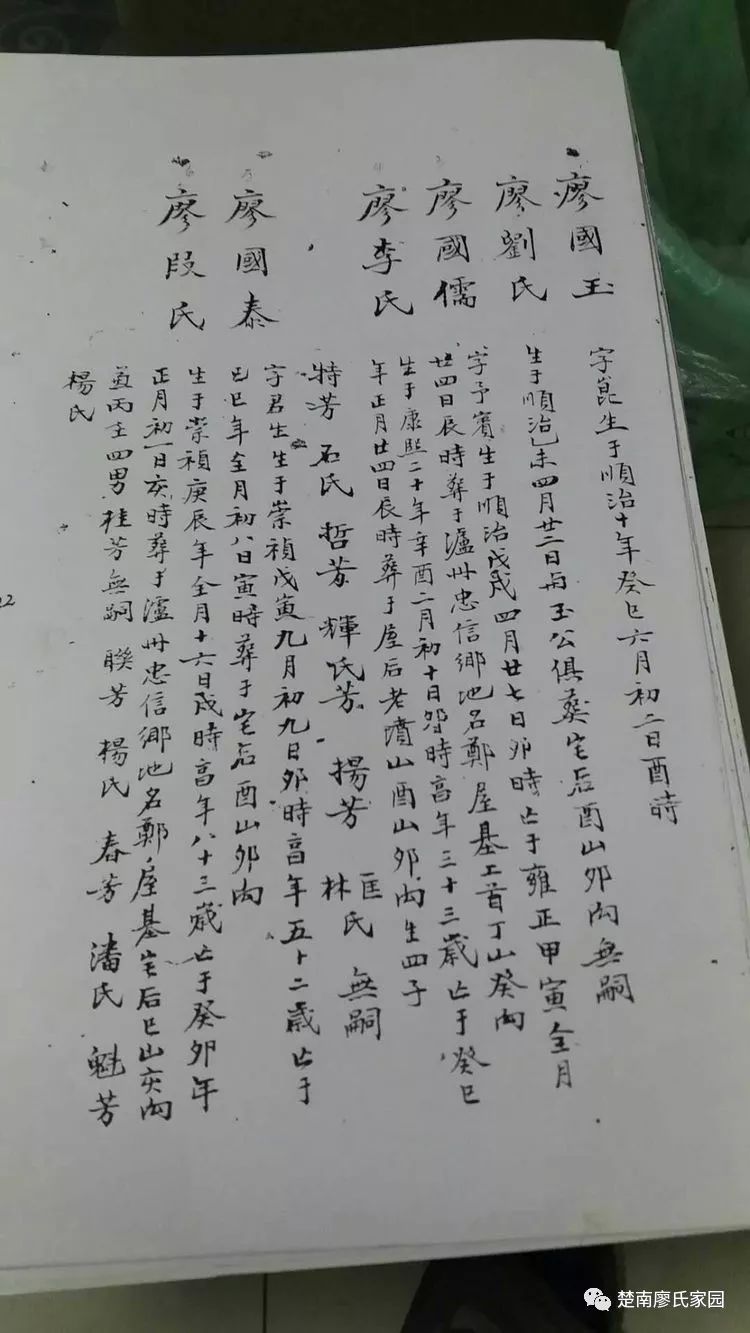 廖國玉
字崑生于順治十年癸巳六月初二日酉時
廖劉氏
生于順治乙未四月廿二日與玉公俱葬宅后酉山卯向無嗣
廖國儒
字予賓生于順治戊戌四月廿七日卯時亡于雍正甲寅全月
廿四日辰時葬于瀘州忠信鄉地名鄭屋基工首丁山癸向
廖李氏
生于康熙二十年辛酉二月初十日卯時高年三十三歲亡于癸巳
年正月廿四日辰時葬于屋后老墳山酉山卯向生四子
特芳 石氏 哲芳 輝氏芳 揚芳 匡氏 林氏 無嗣
廖國泰
字君生生于崇禎戊寅九月初九日卯時高年五十二歲亡于
己巳年全月初八日寅時葬于宅后酉山卯向
廖段氏
生于崇禎庚辰年全月十六日戌時高年八十三歲亡于癸卯年
正月初一日亥時葬于瀘州忠信鄉地名鄭屋基宅后巳山亥向
丙壬四男 桂芳無嗣 聯芳 楊氏 春芳 潘氏 魁芳
楊氏
22
楚南廖氏家园